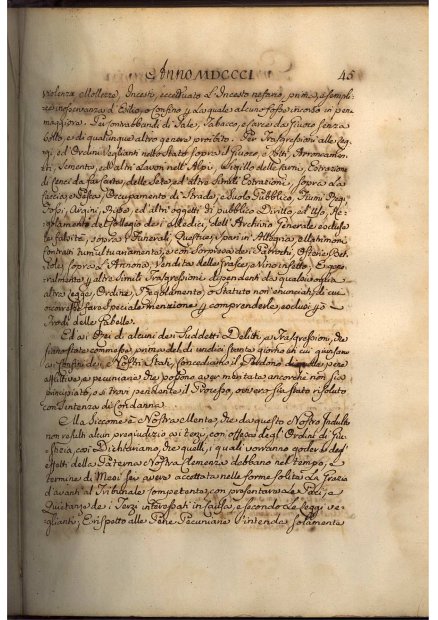 Anno MDCCCI 45
violenze Mollezze, Incesti, eccettuato l'Incesto nefario, punite
inosservanza d'Esilio, o confino per la quale alcuno fosse incorso in pena
maggiore. Per contrabbandi di Sale, Tabacco, e carte da Giuoco senza
bollo, e di qualunque altro genere proibito. Per Trasgressioni alle Leg
gi, ed Ordini Veglianti nello Stato sopra il Giuoco,
Semente, ed altri Lavori nell'Alpi, Sigillo delle Carni, Estrazione
di Cenci da far carta, delle Sete, ed altre Simili Estrazioni, sopra la
Caccia, e Pesca, Occupamento di Strade, e Suolo Pubblico, Fiumi
Fossi, Argini, Ripe, ed altri oggetti di pubblico Diritto, ed Uso, Re
golamento del Collegio dei Medici, dell'Archivio Generale escluse
le falsità, sopra i Funerali, Questue, Spari in Allegria, Matrimonj
contratti tumultuariamente, o con Sorpresa dei Parrochi, Osterie, Bet
tole, sopra l'Annona, Vendita delle Grasce, e Vino infetto, E gene
ralmente per altre Simili Trasgressioni dipendenti da qualsivoglia
altra Legge, Ordine, Regolamento, o Statuto non enunciati, di cui
occorresse fare Speciale menzione per comprenderle, esclusi per
Frodi delle Gabelle.
Ed ai Rei di alcuni dei Suddetti Delitti, e Trasgressioni, che
siano state commesse prima del dì undici
ai Confini dei Nostri Stati, concediamo il Perdono delle pene
afflittive, e pecuniarie che possono aver meritate ancorchè non sia
principiato, o si trovi pendente il Processo, ovvero sia stato risoluto
con Sentenza di Condanna.
E Siccome è Nostra Mente, che da questo Nostro Indulto
non risulti alcun pregiudizio ai terzi, con offesa degl'Ordini di Giu
stizia, così Dichiariamo, che quelli, i quali vorranno godere degl'
effetti della Paterna Nostra Clemenza debbano nel tempo, e
termine di Mesi Sei avere accettata nelle forme solite la Grazia
d'avanti al Tribunale Competente, con presentare la Pace, e
Quietanze dei Terzi interessati in causa, e secondo le Leggi ve
glianti; E rispetto alle Pene Pecuniarie s'intenda solamente